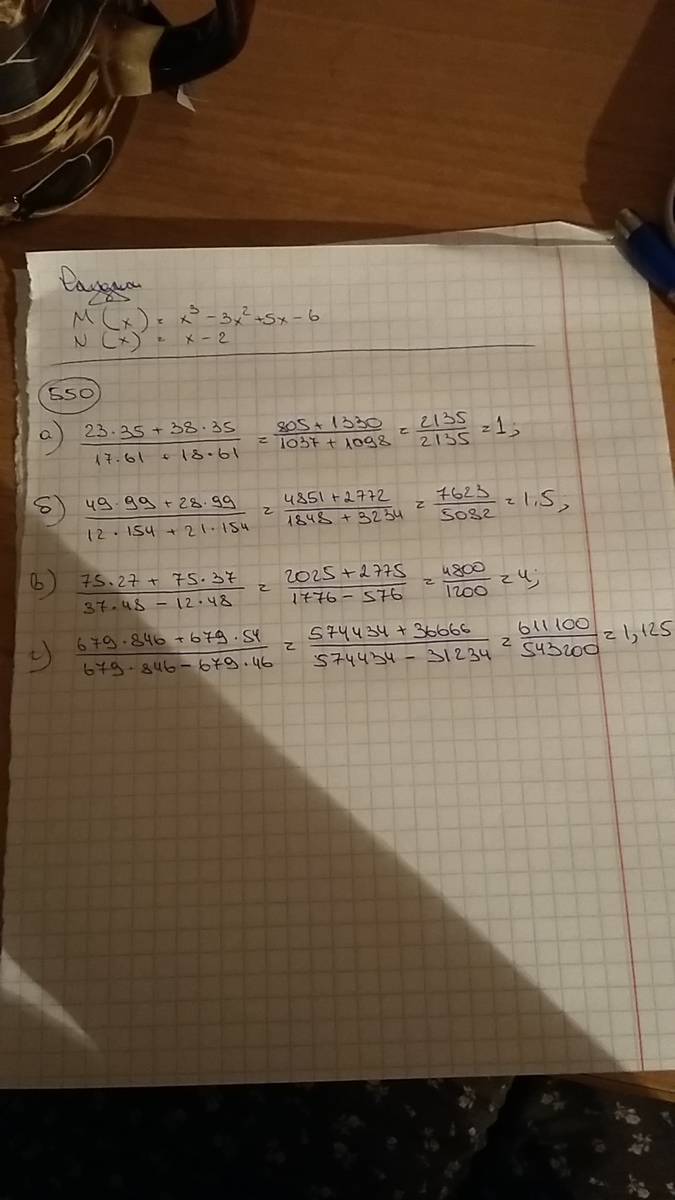 M(x) = x³ - 3x² + 5x - 6
N(x) = x - 2
550
а) (23·35 + 38·35)/(17·61 + 18·61) = (805 + 1330)/(1037 + 1098) = 2135/2135 = 1;
б) (49·99 + 28·99)/(12·154 + 21·154) = (4851 + 2772)/(1848 + 3234) = 7623/5082 = 1,5;
в) (75·27 + 75·37)/(37·48 - 12·48) = (2025 + 2775)/(1776 - 576) = 4800/1200 = 4;
г) (679·846 + 679·54)/(679·846 - 679·46) = (574434 + 36666)/(574434 - 31234) = 611100/543200 = 1,125